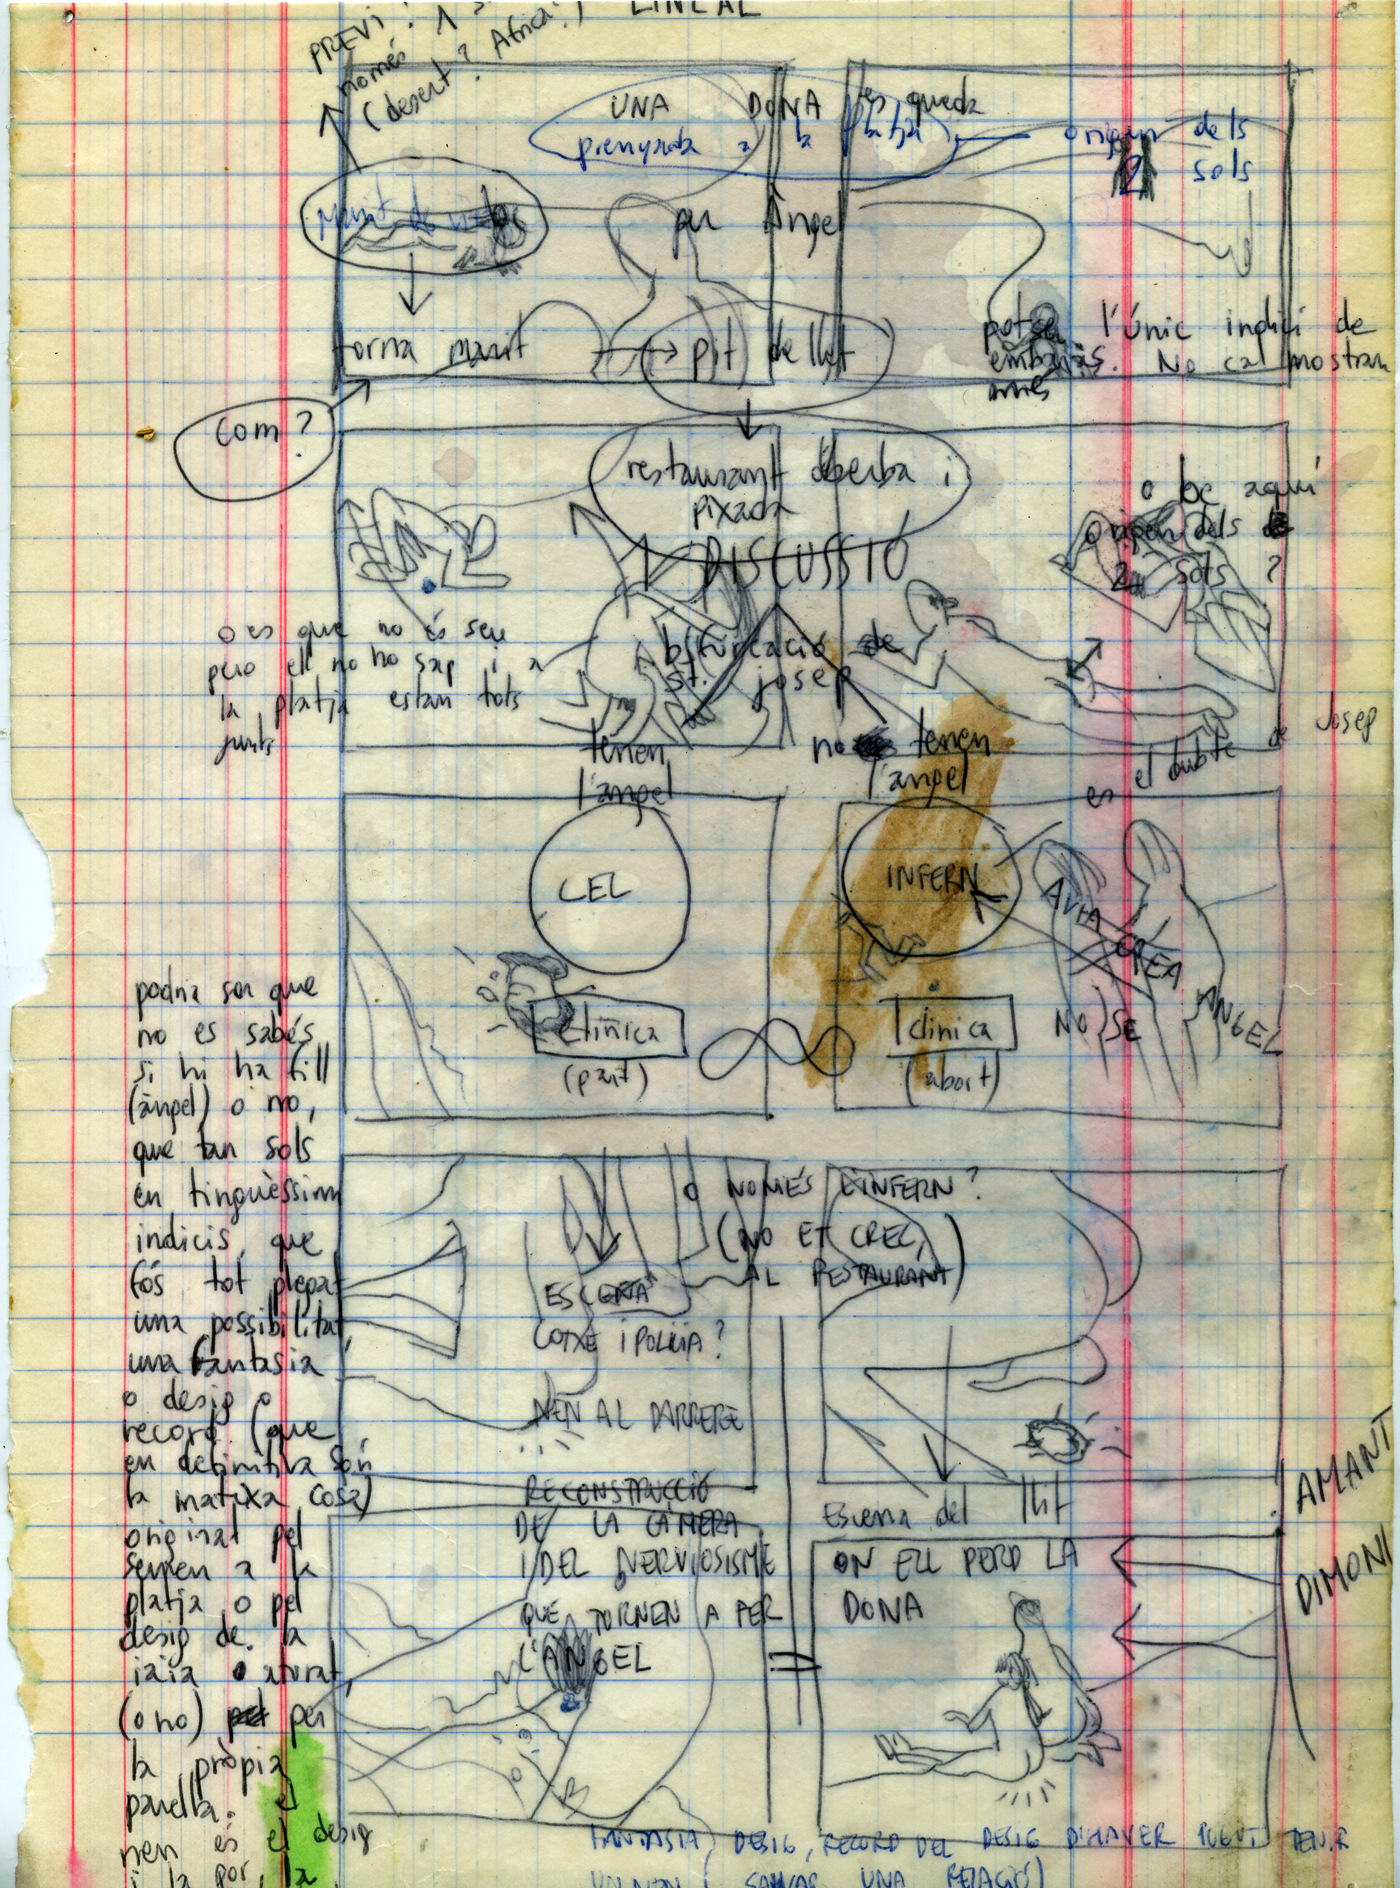 LINEAL
PREVI: 1
només
(desert? Africa?)
UNA DONA es queda
prenyada a la platja
origen dels
2 sols
marit de
per Àngel
torna marit
pit de llet
potser l'únic indici de
embaràs. No cal mostrar
més
Com?
restaurant i
pixada
DISCUSSIÓ
o bé aquí
origen dels
2 sols?
o es que no és seu
pero ell no ho sap i a
la platja estan tots
junts
bifurcació de
St. Josep
tenen
l'àngel
no tenen
l'àngel
es el dubte de Josep
CEL
INFERN
AVIA CREA ANGEL
NO SE
clínica
(part)
clinica
(abort)
podria ser que
no es sabés
si hi ha fill
(àngel) o no,
que tan sols
en tinguéssim
indicis, que
fós tot plegat
una possibilitat,
una fantasia
o desig o
record (que
en definitiva són
la mateixa cosa)
originat pel
semen a la
platja o pel
desig de la
iaia o aturat,
(o no) per
la pròpia
parella. el
nen és el desig
i la por, la
O NOMÉS L'INFERN?
(NO ET CREC,
AL RESTAURANT)
ESCENA
COTXE I POLICIA?
NEN AL DARRERE
RECONSTRUCCIÓ
DE LA CÀMERA
I DEL NERVIOSISME
QUE TORNEN A PER
L'ANGEL
Escena del llit
ON ELL PERD LA
DONA
AMANT
DIMONI
FANTASIA, DESIG, RECORD DEL DESIG D'HAVER POGUT TENIR
UN NEN I SALVAR UNA RELACIÓ)